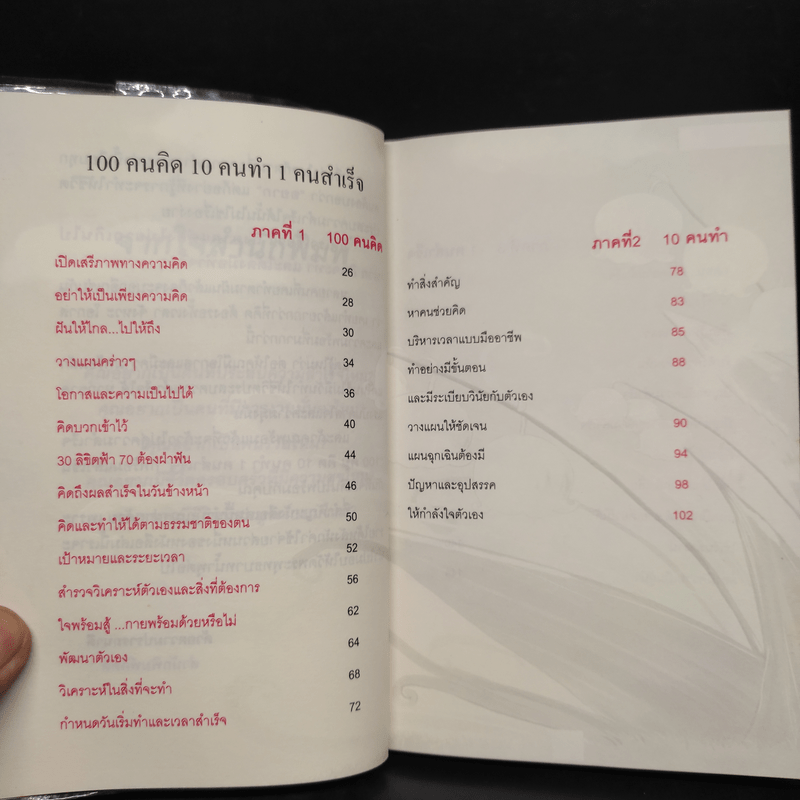 100 คนคิด 10 คนทำ 1 คนสำเร็จ
ภาคที่ 1 100 คนคิด
เปิดเสรีภาพทางความคิด 26
อย่าให้เป็นเพียงความคิด 28
ฝันให้ไกล...ไปให้ถึง 30
วางแผนคร่าวๆ 34
โอกาสและความเป็นไปได้ 36
คิดบวกเข้าไว้ 40
30 ลิขิตฟ้า 70 ต้องฝ่าฟัน 44
คิดถึงผลสำเร็จในวันข้างหน้า 46
คิดและทำให้ได้ตามธรรมชาติของตน 50
เป้าหมายและระยะเวลา 52
สำรวจวิเคราะห์ตัวเองและสิ่งที่ต้องการ 56
ใจพร้อมสู้ ...กายพร้อมด้วยหรือไม่ 62
พัฒนาตัวเอง 64
วิเคราะห์ในสิ่งที่จะทำ 68
กำหนดวันเริ่มทำและเวลาสำเร็จ 72
ภาคที่2 10 คนทำ
ทำสิ่งสำคัญ 78
หาคนช่วยคิด 83
บริหารเวลาแบบมืออาชีพ 85
ทำอย่างมีขั้นตอน 88
และมีระเบียบวินัยกับตัวเอง
วางแผนให้ชัดเจน 90
แผนฉุกเฉินต้องมี 94
ปัญหาและอุปสรรค 98
ให้กำลังใจตัวเอง 102